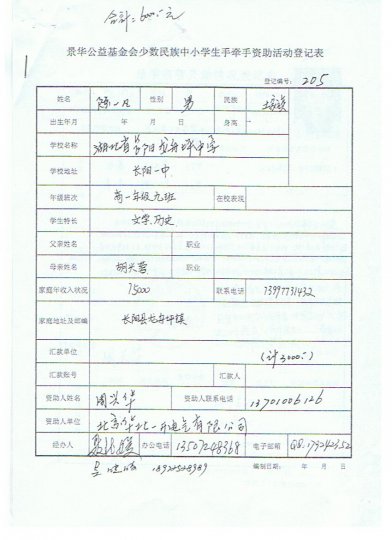 合计: 6000.元
景华公益基金会少数民族中小学生手牵手资助活动登记表
登记编号: 205
姓名 性别 男 民族 土家族
出生年月 年 月 日 身高
学校名称 湖北省长阳龙舟坪中学
学校地址 长阳一中
年级班次 高一年级九班 在校表现
学生特长 文学.历史
父亲姓名 职业
母亲姓名 胡兴蓉 职业
家庭年收入状况 15000 联系电话 13997731432
家庭地址及邮编 长阳县龙舟坪镇
汇款单位 (计3000.)
汇款账号 汇款人
资助人姓名 周兴华 资助人联系电话 13701006126
资助人单位 北京华北一开电气有限公司
经办人 办公电话 13507248368 电子邮箱
18972528989 编制日期: 年 月 日